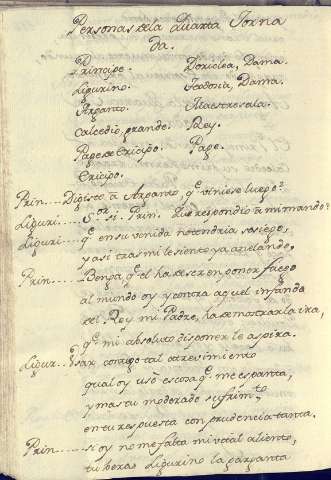 Personas de la Quarta Jorna
da.
Principe. Doriclea, Dama.
Ligurino. Teodoria, Dama.
Arpanto. Maestresala.
Calcedio, grande. Rey.
Page de Crisipo. Page.
Crisipo.
Prin.... Digiste a Arpanto, q̃ viniese luego?
Liguri.... Sor. si. Prin. Que respondio a mi mando?
Liguri.... q̃ en su venida no tendria sosiego,
y asi tras mi le siento ya
Prin.... Benga q̃ el ha de ser en poner fuego
al mundo oy y contra aquel infando
del Rey mi Padre, ha de mostrar la ira,
q̃ mi absoluto disponer le aspira.
Ligur.... tal atrevimiento
qual oy usè es cosa q̃ me espanta,
y mas tu moderado sufrimto.
en tu respuesta con prudencia tanta.
Prin.... si oy no me falta mi vital aliento,
tu beras Ligurino la garganta